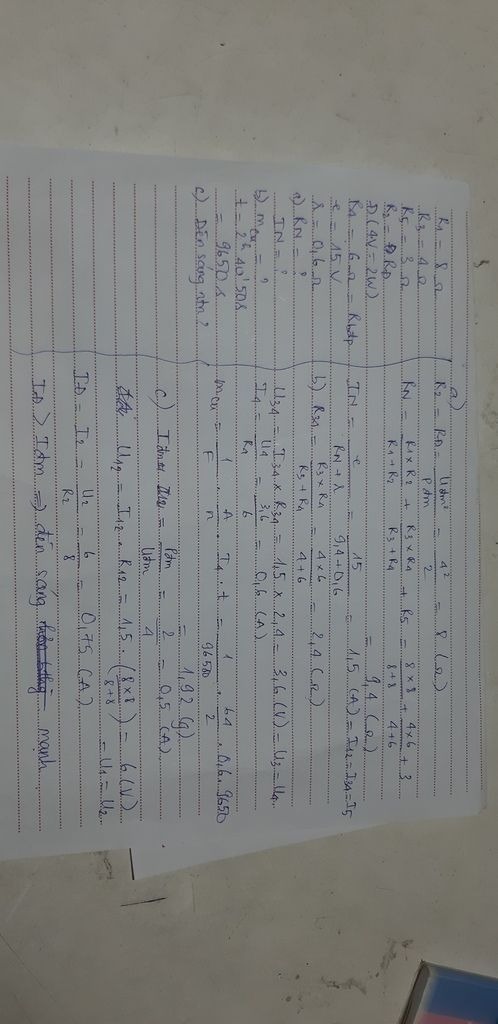 R1 = 8 Ω
R3 = 4 Ω
R5 = 3 Ω
R2 = RĐ
Đ(4V-2W)
R4 = 6 Ω = Rbđp
e = 15 V
r = 0,6 Ω
a) RN = ?
IN = ?
b) mcu = ?
t = 2h 40' 50s
= 9650 s
c) Đèn sáng ntn?
a)
R2 = RĐ = Uđm² / Pđm = 4² / 2 = 8 (Ω)
RN = R1 x R2 / R1 + R2 + R3 x R4 / R3 + R4 + R5 = 8 x 8 / 8 + 8 + 4 x 6 / 4 + 6 + 3
= 9,4 (Ω)
IN = e / RN + r = 15 / 9,4 + 0,6 = 1,5 (A) = I12 = I34 = I5
b) R34 = R3 x R4 / R3 + R4 = 4 x 6 / 4 + 6 = 2,4 (Ω)
U34 = I34 x R34 = 1,5 x 2,4 = 3,6 (V) = U3 = U4
I4 = U4 / R4 = 3,6 / 6 = 0,6 (A)
mcu = 1 / F . A / n . I4 . t = 1 / 9650 . 64 / 2 . 0,6 . 9650
= 1,92 (g)
c) Iđm = Pđm / Uđm = 2 / 4 = 0,5 (A)
U12 = I12 . R12 = 1,5 . (8 x 8 / 8 + 8) = 6 (V)
= U1 = U2
IĐ = I2 = U2 / R2 = 6 / 8 = 0,75 (A)
IĐ > Iđm => đèn sáng mạnh